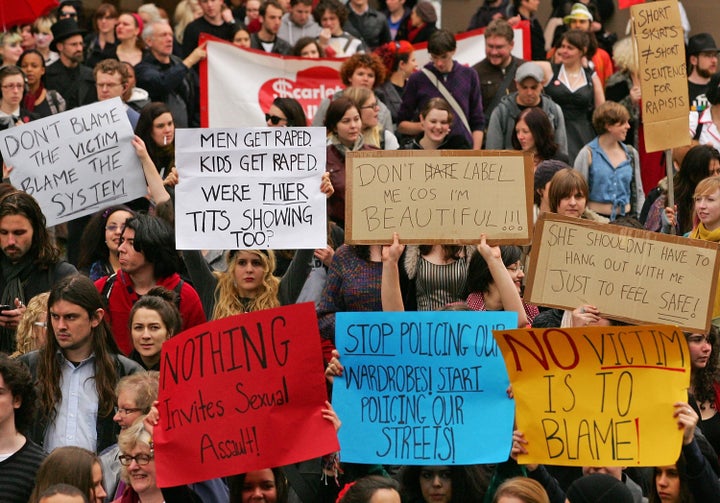 SHORT
SKIRTS
≠ SHORT
SENTENCE
FOR
RAPISTS
$carlet
DON'T BLAME
THE VICTIM
BLAME THE
SYSTEM
MEN GET RAPED,
KIDS GET RAPED.
WERE THIER
TITS SHOWING
TOO?
DON'T HATE LABEL
ME 'COS I'M
BEAUTIFUL!!!
SHE SHOULDN'T HAVE TO
HANG OUT WITH ME
JUST TO FEEL SAFE!
NOTHING
Invites Sexual
Assault!
STOP POLICING OUR
WARDROBES! START
POLICING OUR
STREETS!
NO VICTIM
IS TO
BLAME!